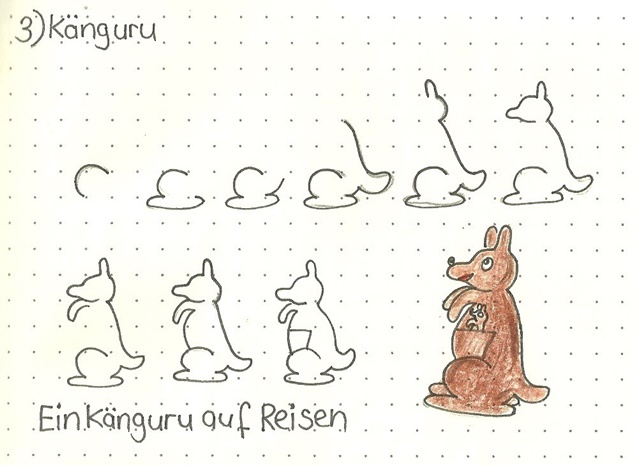 3) Känguru
Ein Känguru auf Reisen